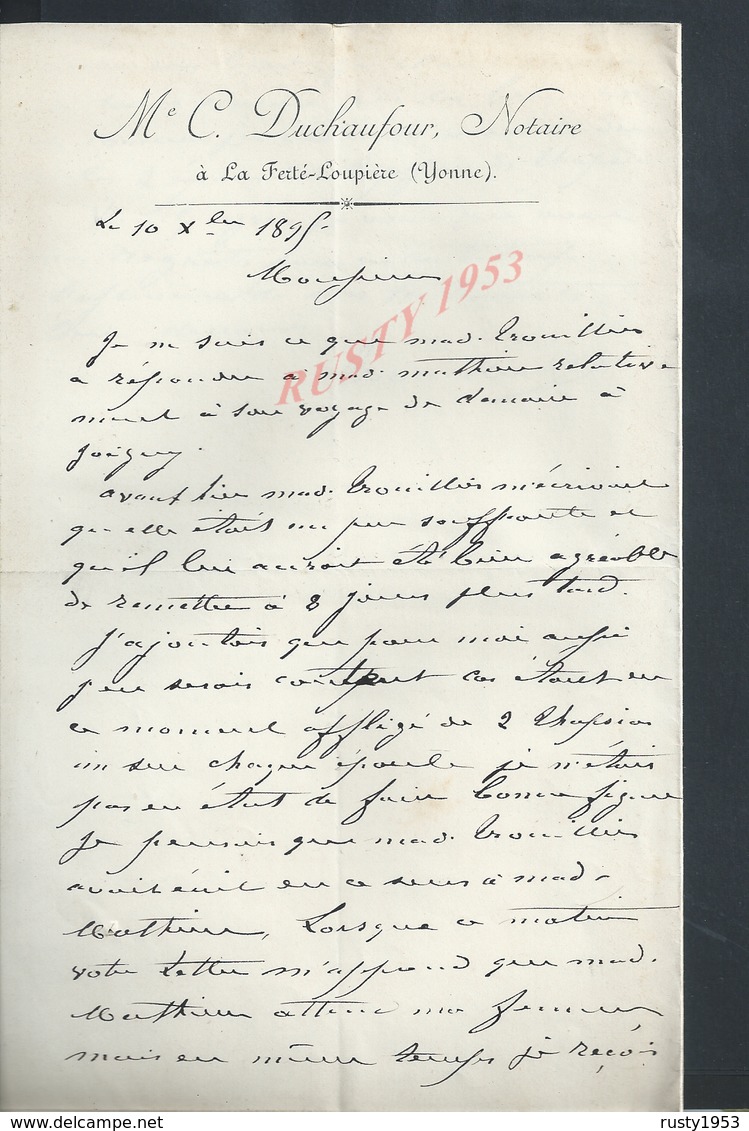 Me C. Duchaufour, Notaire
à La Ferté-Loupière (Yonne).
Le 10 Xbre 1895
Monsieur
RUSTY 1953
Je ne sais ce que mad. Trouillier
a répondu à mad. Mathieu relative
ment à son voyage de demain à
Joigny.
avant hier mad. Trouillier m'écrivait
qu'elle était un peu souffrante et
qu'il lui auroit été bien agréable
de remettre à 8 jours plus tard.
J'ajoutois que pour moi aussi
j'en serois content car étant en
ce moment affligé de 2 thapsias
un sur chaque épaule je n'étais
pas en état de faire bonne figure
Je pensais que mad. Trouillier
avait écrit en ce sens à mad.
Mathieu, Lorsque ce matin
votre Lettre m'apprend que mad.
Mathieu attend ma femme
mais en même temps je reçois
delcampe.net
rusty1953